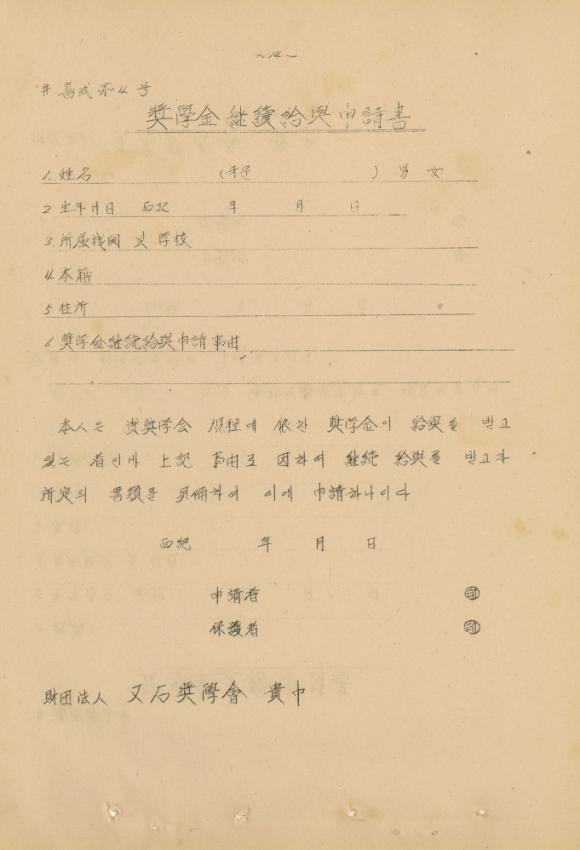 -14-
# 書式 不4号
奬學金継續給與申請書
1. 姓名 (국문 ) 男 女
2. 生年月日 西紀 年 月 日
3. 所属機関 및 学校
4. 本籍
5. 住所
6. 奨学金継続給與申請事由
本人은 貴奨学会 規程에 依한 奨学金이 給與를 받고
있는 者인바 上記 事由로 因하여 継続 給與를 받고자
所定의 書類를 具備하여 이에 申請하나이다
西紀 年 月 日
申請者 印
保護者 印
財団法人 又石奬學會 貴中